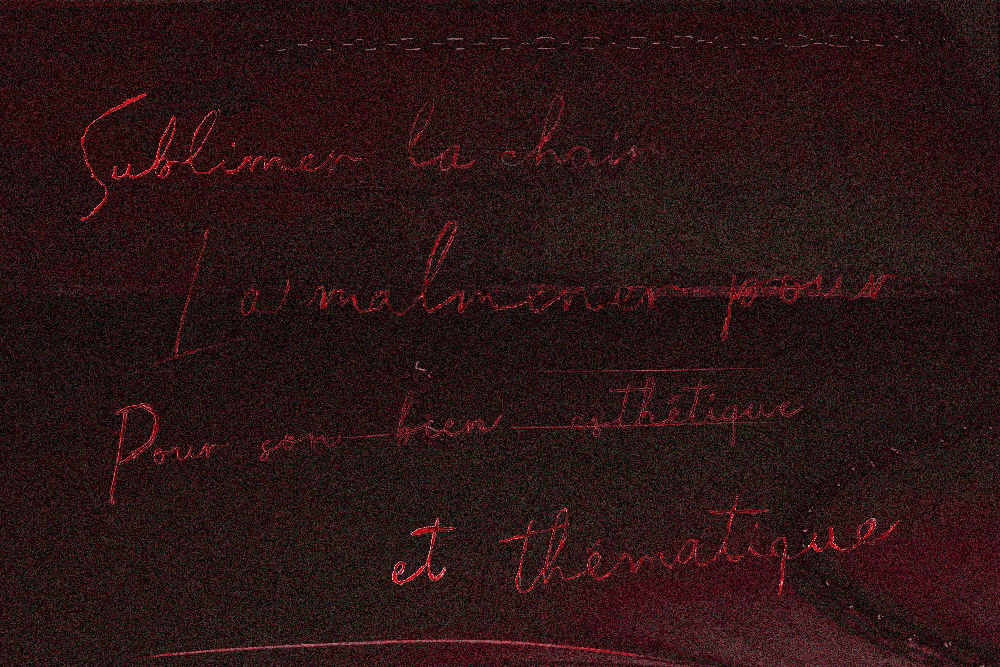 Sublimer la chair
La malmener pour
Pour son bien esthétique
et thématique